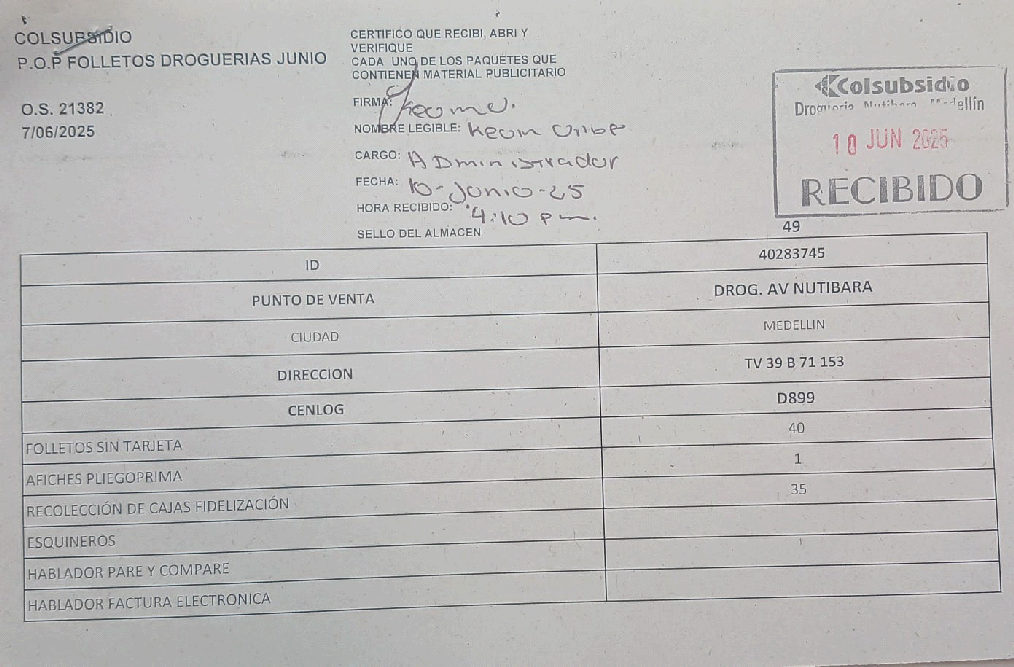 COLSUBSIDIO
P.O.P FOLLETOS DROGUERIAS JUNIO
O.S. 21382
7/06/2025
CERTIFICO QUE RECIBI, ABRI Y
VERIFIQUE
CADA UNO DE LOS PAQUETES QUE
CONTIENEN MATERIAL PUBLICITARIO
FIRMA:
NOMBRE LEGIBLE:
CARGO: ADministrador
FECHA: 10-Junio-25
HORA RECIBIDO: 4:10 pm.
SELLO DEL ALMACEN
Colsubsidio
Medellín
10 JUN 2025
RECIBIDO
49
ID 40283745
PUNTO DE VENTA DROG. AV NUTIBARA
CIUDAD MEDELLIN
DIRECCION TV 39 B 71 153
CENLOG D899
FOLLETOS SIN TARJETA 40
AFICHES PLIEGOPRIMA 1
RECOLECCIÓN DE CAJAS FIDELIZACIÓN 35
ESQUINEROS
HABLADOR PARE Y COMPARE
HABLADOR FACTURA ELECTRONICA